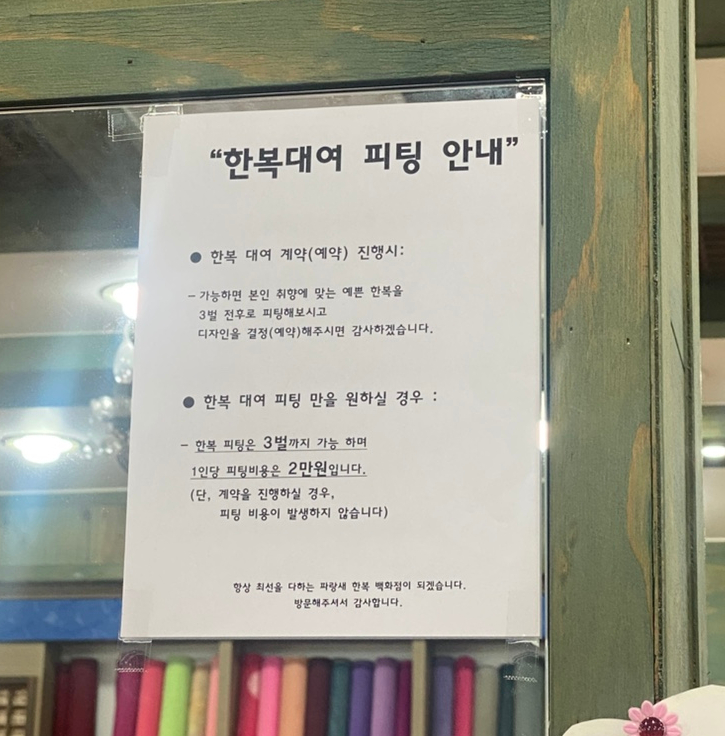 “한복대여 피팅 안내”
● 한복 대여 계약(예약) 진행시:
- 가능하면 본인 취향에 맞는 예쁜 한복을
3벌 전후로 피팅해보시고
디자인을 결정(예약)해주시면 감사하겠습니다.
● 한복 대여 피팅 만을 원하실 경우 :
- 한복 피팅은 3벌까지 가능 하며
1인당 피팅비용은 2만원입니다.
(단, 계약을 진행하실 경우,
피팅 비용이 발생하지 않습니다)
항상 최선을 다하는 파랑새 한복 백화점이 되겠습니다.
방문해주셔서 감사합니다.